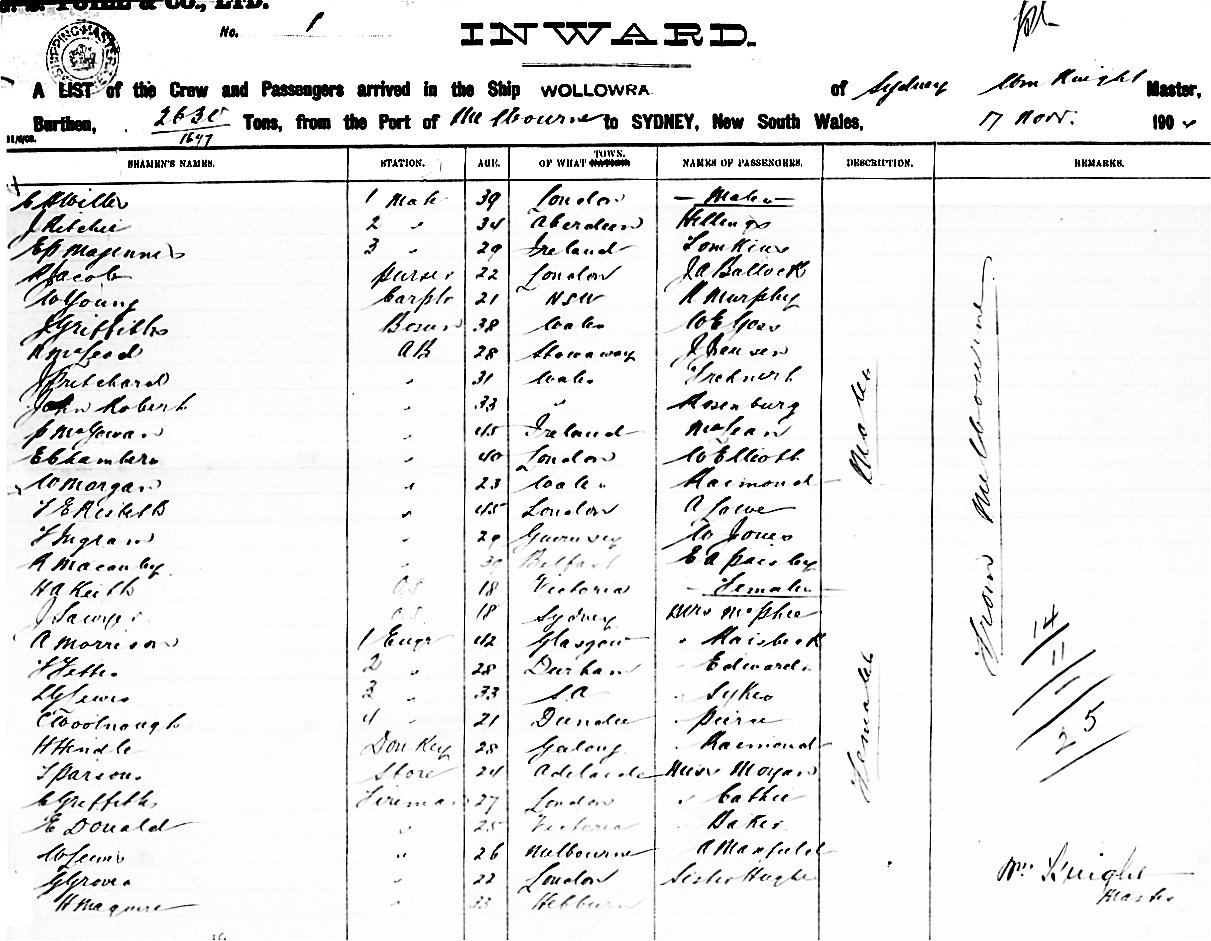 & CO., LTD.
No. 1
INWARD.
A LIST of the Crew and Passengers arrived in the Ship WOLLOWRA of Sydney Wm Knight Master,
Burthen, 2630 Tons, from the Port of Melbourne to SYDNEY, New South Wales, 17 Novr. 190
1647
SEAMEN'S NAMES. STATION. AGE. OF WHAT TOWN. NAMES OF PASSENGERS. DESCRIPTION. REMARKS.
1 Mate 39 London — Males —
J Ritchie 2 " 34 Aberdeen Hellings
3 " 29 Ireland Tomkins
Jacob Purser 22 London J A Ballock
W Young Carptr 21 NSW R Murphy
J Griffiths Bosun 38 Wales W E Goss
McLeod AB 28 Stowaway J Jensen
J Pritchard " 31 Wales
John Robert " 33 " Rosenburg
McGowan " 45 Ireland McLean
E Chambers " 40 London W Elliott
W Morgan " 23 Wales Raimond
" 45 London A Lowe
T Ingram " 29 Guernsey W Jones
R Macauley " 39 Belfast E A Paisley
H A Keith OS 18 Victoria — Females —
J Sawyer OS 18 Sydney Mrs McPhee
A Morrison 1 Engr 42 Glasgow " Raisbeck
2 " 28 Durham " Edwards
Lewis 3 " 33 S.A " Sykes
C Woolnough 4 " 21 Dundee " Pierse
H Hendle Donkey 28 Galong " Raimond
T Parsons Store 24 Adelaide Miss Morgan
C Griffiths Fireman 27 London " Cathie
E Donald " 25 Victoria " Baker
W Lewis " 26 Melbourne " A Manfield
G Groves " 22 London Sister Hughe
H Maguire " 33 Hebburn
Males
Females
From Melbourne
14
11
25
Wm Knight
Master